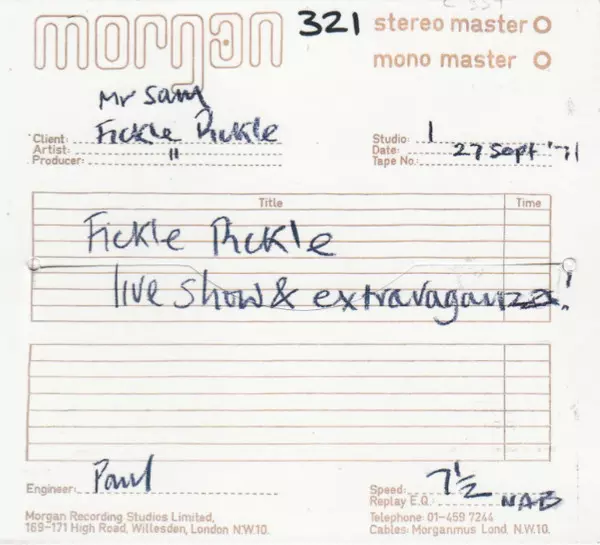 morgan 321 stereo master O
mono master O
Mr Sam
Client: Fickle Pickle
Studio: 1
Artist: "
Date: 27 Sept '71
Producer:
Tape No.:
Title Time
Fickle Pickle
live show & extravaganza!
Engineer: Paul
Speed: 7 1/2
Replay E.Q. NAB
Morgan Recording Studios Limited,
169-171 High Road, Willesden, London N.W.10.
Telephone: 01-459 7244
Cables: Morganmus Lond. N.W.10.